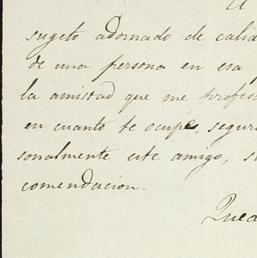 sugeto adornado de calid
de una persona en esa
la amistad que me profes
en cuanto te ocupe, segur
sonalmente este amigo, s
comendacion.
Qued